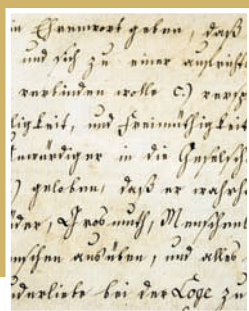 in Ehrenwort geben, daß
und sich zu einer aufricht
verbinden wolle c.) versch
ligkeit, und Freimüthigkeit
würdiger in die Gesellsch
) geloben, daß er wahrh
der, Grosmuth, Menschenl
nschen ausüben, und alles
nderliebe bei der Loge zu